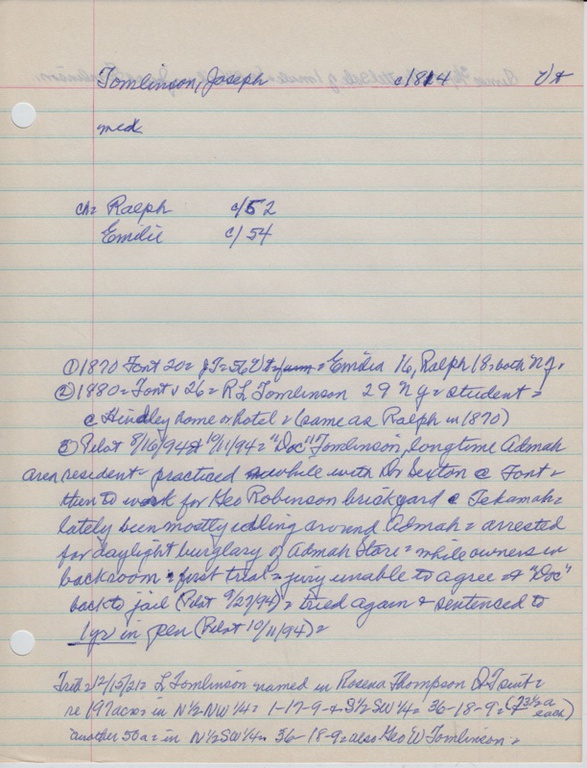 Tomlinson, Joseph c/814 Vt
med
ch= Ralph c/52
Emilie c/54
① 1870 Font 20= JT=56 Vt= = Emilia 16, Ralph 18= both NY=
② 1880= Font v 26= R L Tomlinson 29 NY= student=
c Hindley home or hotel= (same as Ralph in 1870)
③ Pilot 8/16/94 + 10/11/94= "Doc" Tomlinson, longtime Admah
area resident= practiced awhile with Dr Sexton @ Font=
then to work for Geo Robinson brickyard @ Tekamah=
lately been mostly idling around Admah= arrested
for daylight burglary of Admah Store= while owners in
backroom= first trial= jury unable to agree & "Doc"
back to jail (Pilot 9/27/94)= tried again & sentenced to
1 yr in pen (Pilot 10/11/94)=
Trib= 12/15/21= L Tomlinson named in Rosena Thompson QT suit=
re 197 acres in N½ NW¼= 1-17-9= & S½ SW¼= 36-18-9= (73½ a each)
another 50a= in N½ SW¼= 36-18-9= also Geo W Tomlinson=